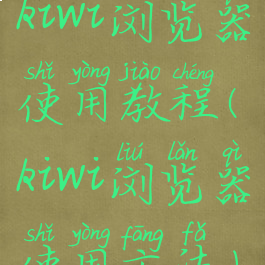 kiwi浏览器
shǐ yòng jiào chéng
使用教程(
liú lǎn qì
kiwi浏览器
shǐ yòng fāng fǎ
使用方法)